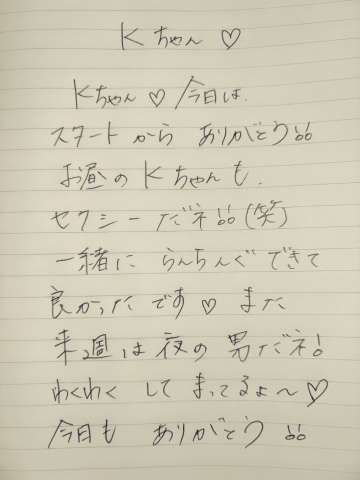 Kちゃん♡
Kちゃん♡今日は.
スタートから ありがとう!!
お昼のKちゃんも.
セクシーだネ!!(笑)
一緒に らんらんぐできて
良かったです♡ また
来週は夜の男だネ!
わくわく してまってるょ〜♡
今日も ありがとう!!